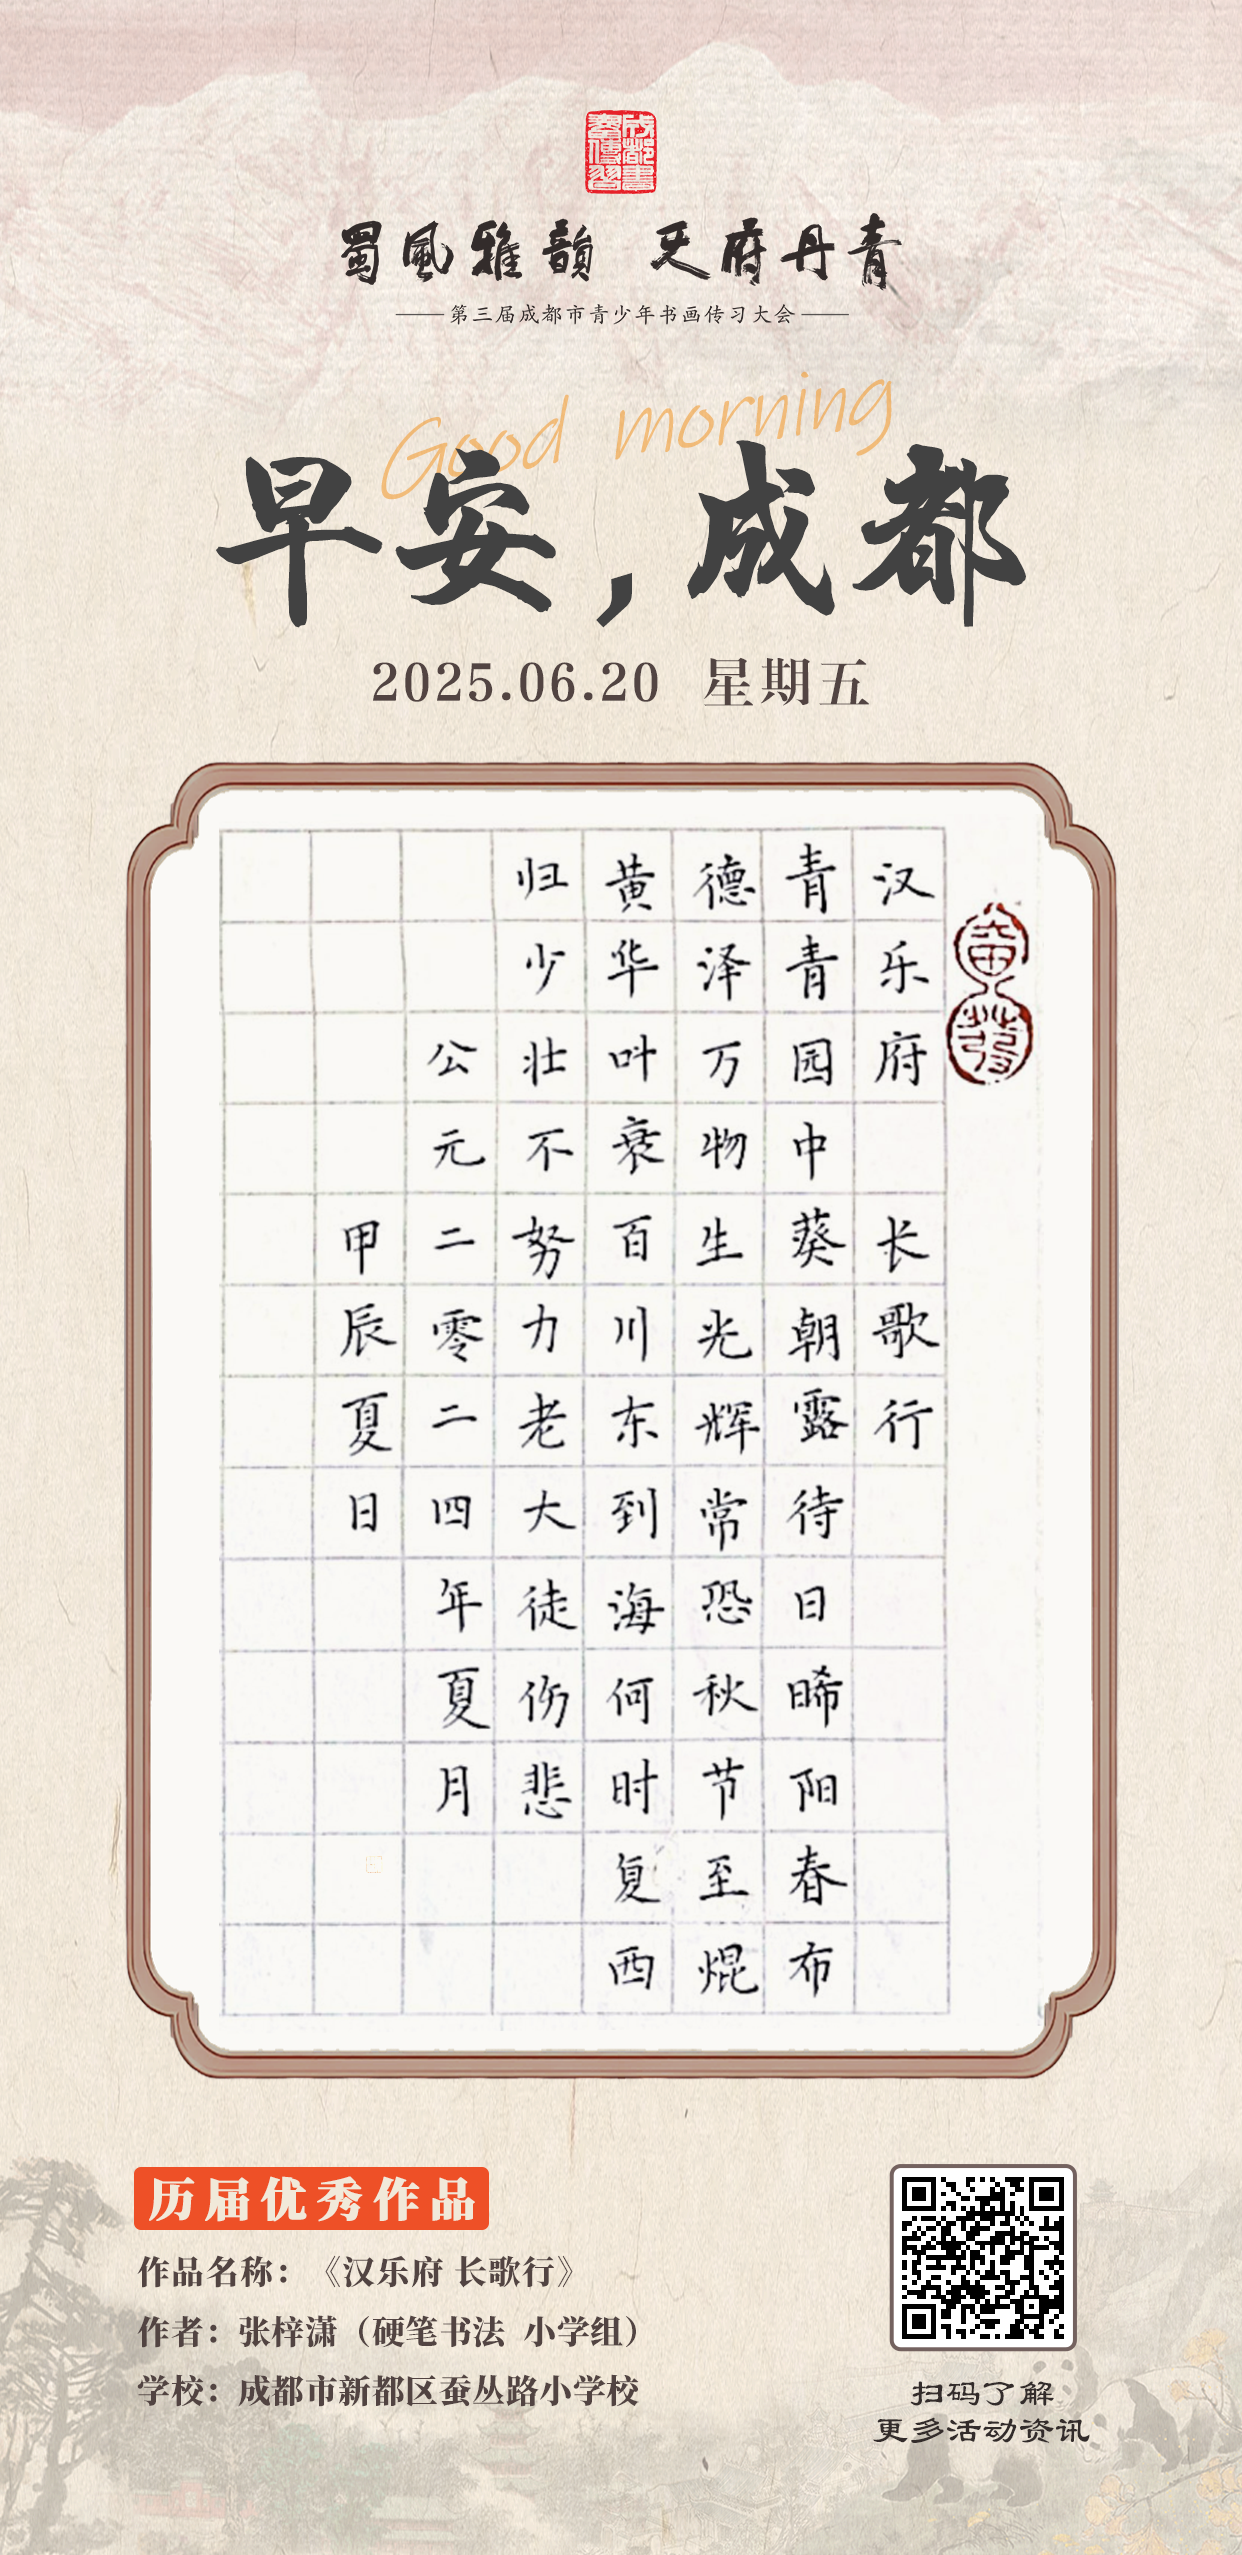 成都書畫傳習
蜀風雅韻 天府丹青
第三届成都市青少年书画传习大会
Good morning
早安,成都
2025.06.20 星期五
汉乐府 长歌行
青青园中葵朝露待日晞阳春布
德泽万物生光辉常恐秋节至焜
黄华叶衰百川东到海何时复西
归少壮不努力老大徒伤悲
公元二零二四年夏月
甲辰夏日
历届优秀作品
作品名称：《汉乐府 长歌行》
作者：张梓潇（硬笔书法 小学组）
学校：成都市新都区蚕丛路小学校
扫码了解
更多活动资讯